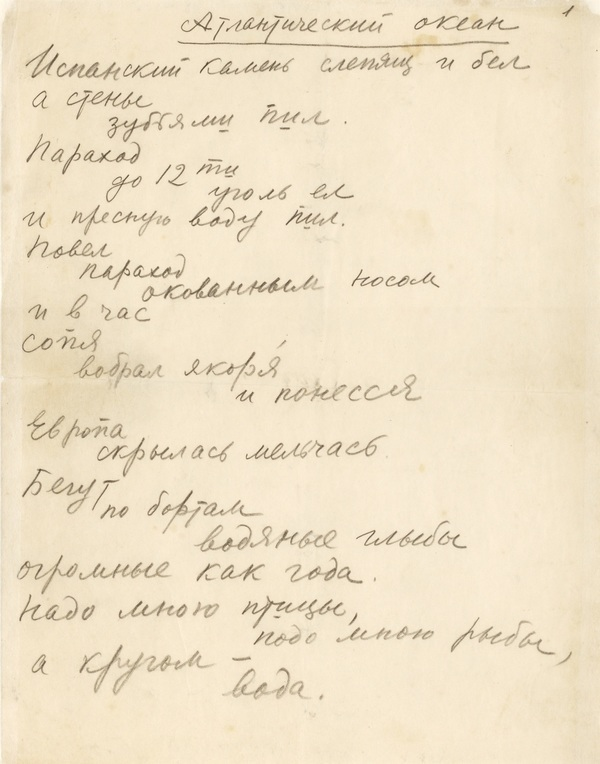 1
Атлантический океан
Испанский камень слепящ и бел
а стены
зубьями пил.
Пароход
до 12ти
уголь ел
и пресную воду пил.
Повел
пароход
окованным носом
и в час
сопя
вобрал якоря́
и понесся
Европа
скрылась мельчась
Бегут
по бортам
водяные глыбы
огромные как года.
Надо мною птицы,
подо мною рыбы,
а кругом –
вода.